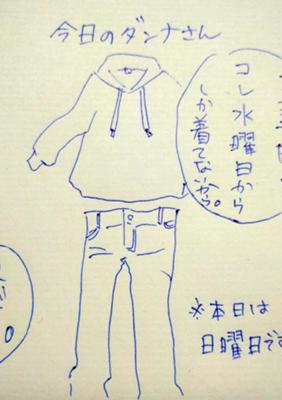 今日のダンナさん
コレ水曜日から
しか着てないから。
※本日は
日曜日です